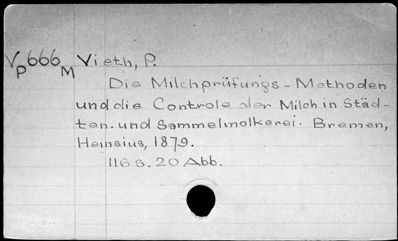 VP666M Vieth, P.
Die Milchprüfungs-Methoden
und die Controle der Milch in Städ-
ten. und Sammelmolkerei. Bremen,
Heinsius, 1879.
116 s. 20 Abb.